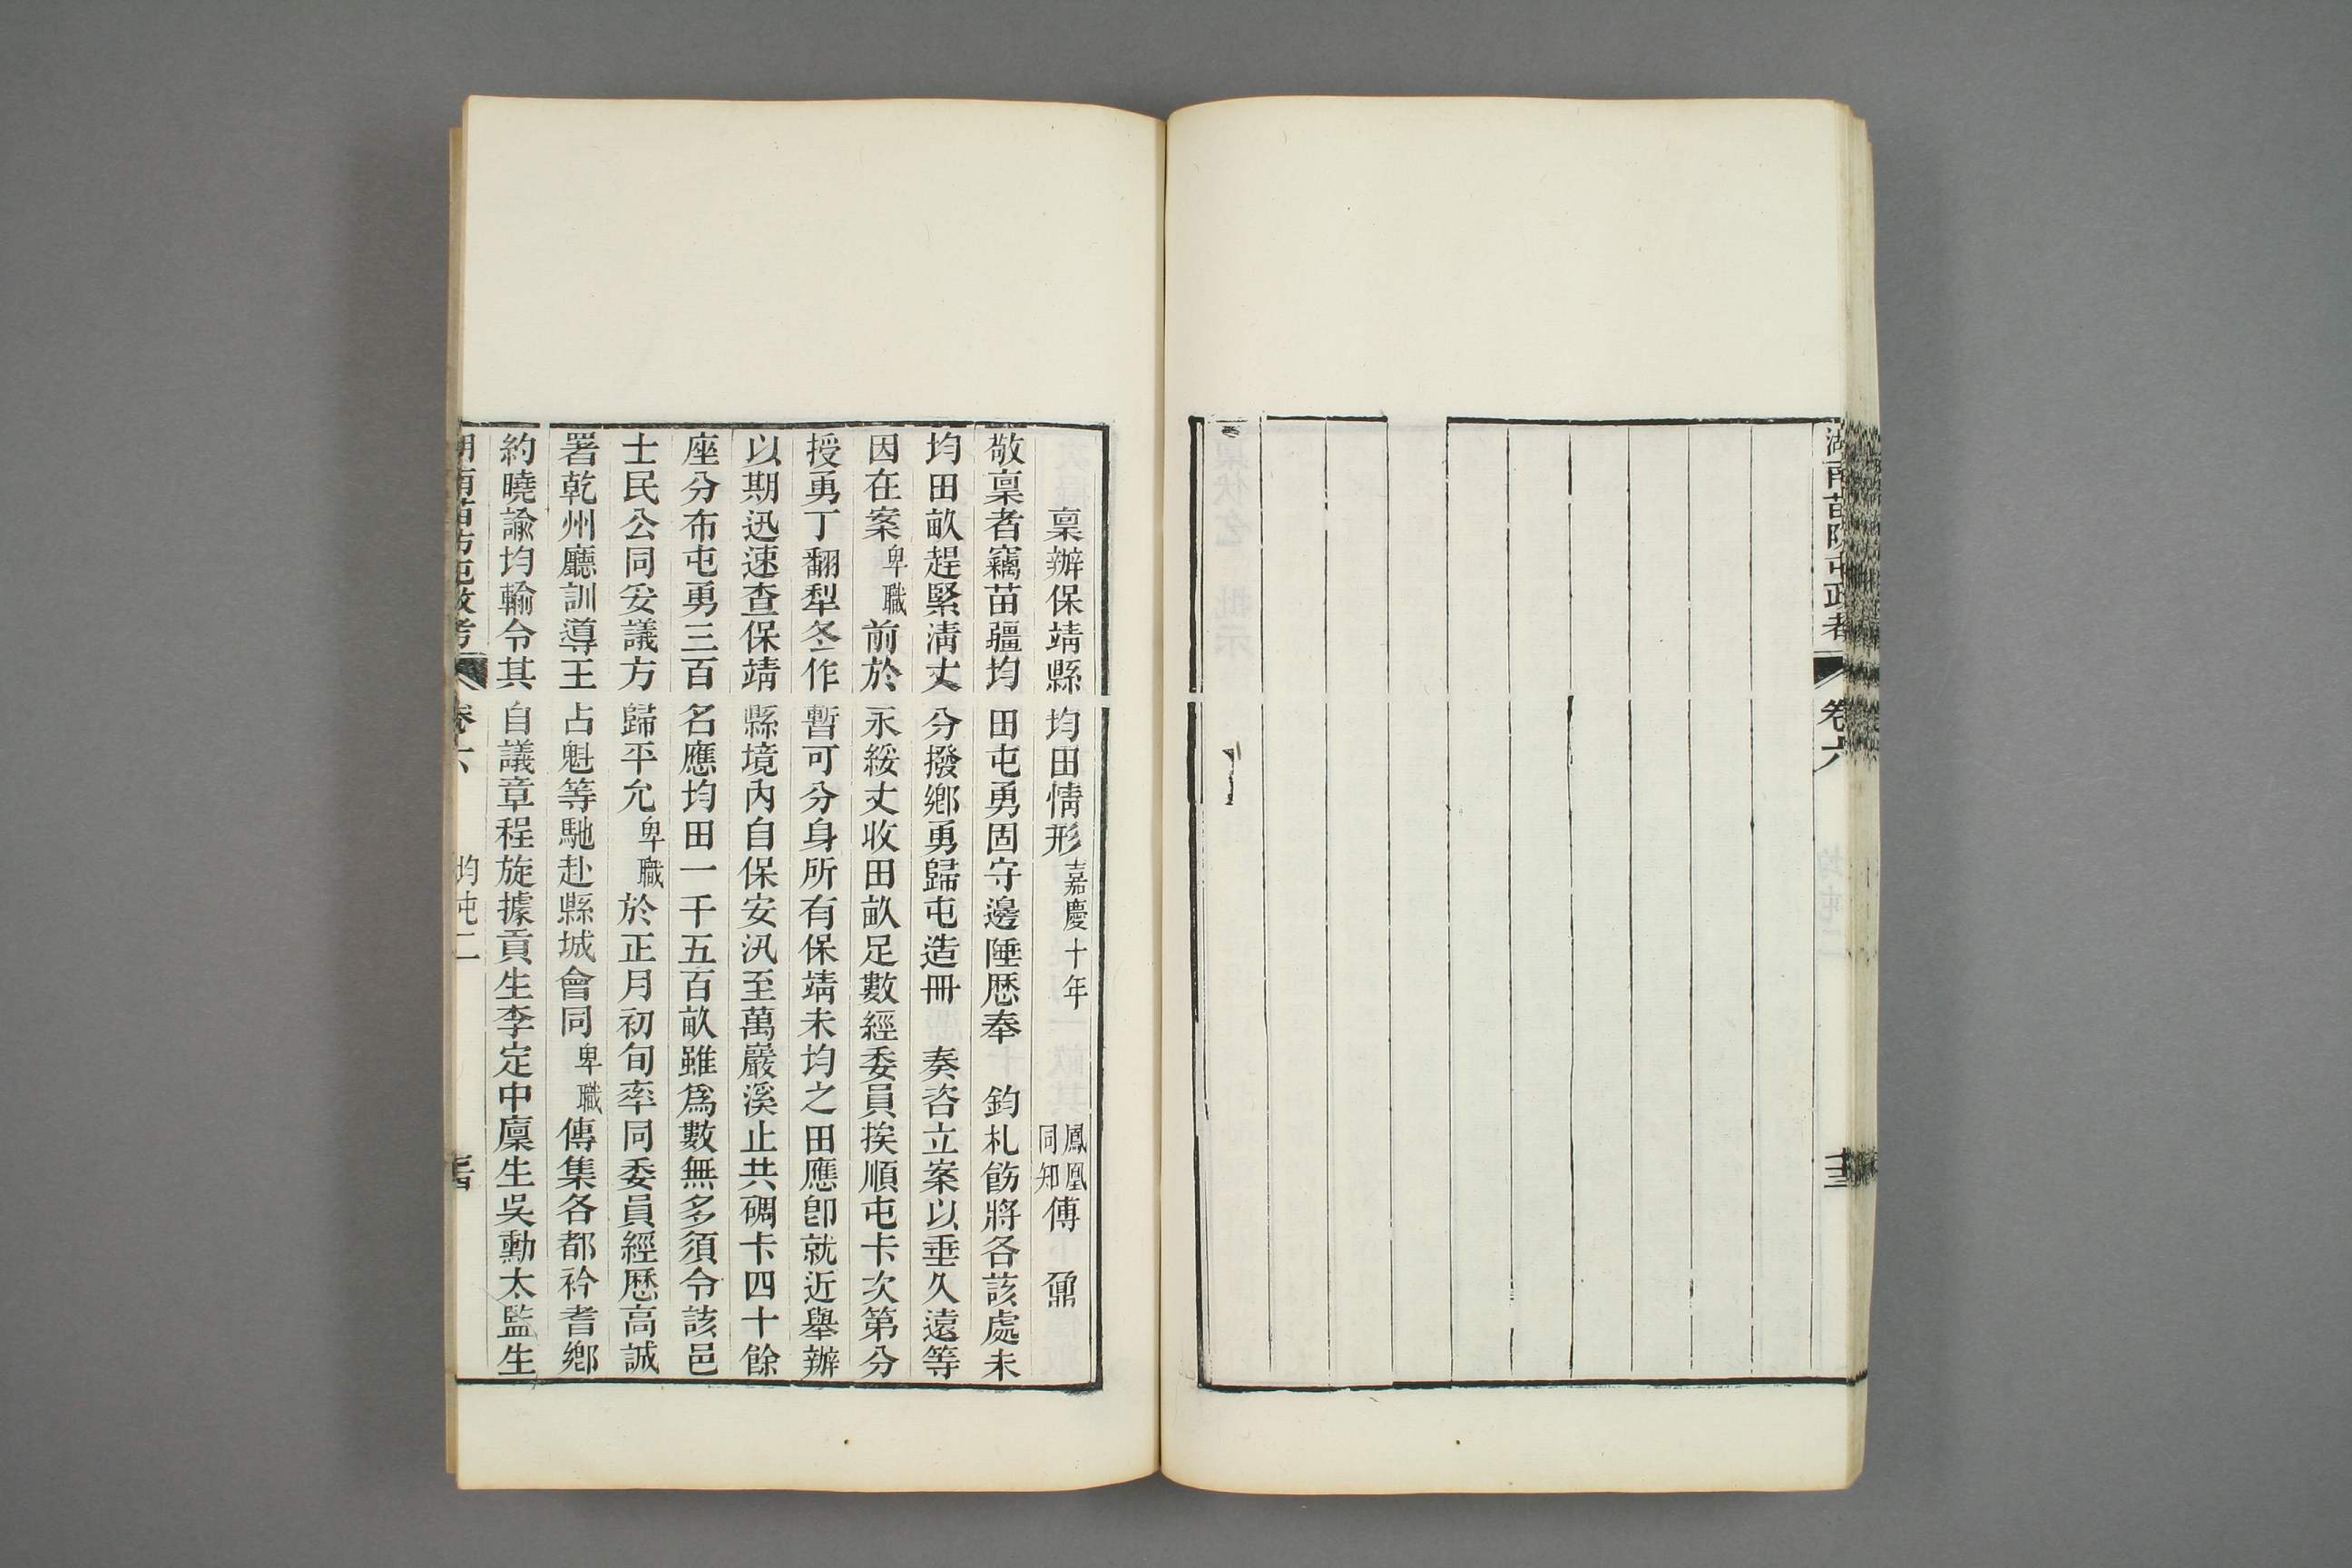 湖南苗防屯政考 卷六
稟辦保靖縣均田情形 嘉慶十年 鳳凰同知傅鼐
敬稟者竊苗疆均田屯勇固守邊陲歷奉 鈞札飭將各該處未
均田畝趕緊淸丈分撥鄉勇歸屯造冊 奏咨立案以垂久遠等
因在案卑職前於永綏丈收田畝足數經委員挨順屯卡次第分
授勇丁翻犁冬作暫可分身所有保靖未均之田應卽就近舉辦
以期迅速查保靖縣境內自保安汛至萬巖溪止共碉卡四十餘
座分布屯勇三百名應均田一千五百畝雖爲數無多須令該邑
士民公同妥議方歸平允卑職於正月初旬率同委員經歷高誠
署乾州廳訓導王占魁等馳赴縣城會同卑職傳集各都衿耆鄉
約曉諭均輸令其自議章程旋據貢生李定中廩生吳勳太監生
湖南苗防屯政考 卷六 均屯二